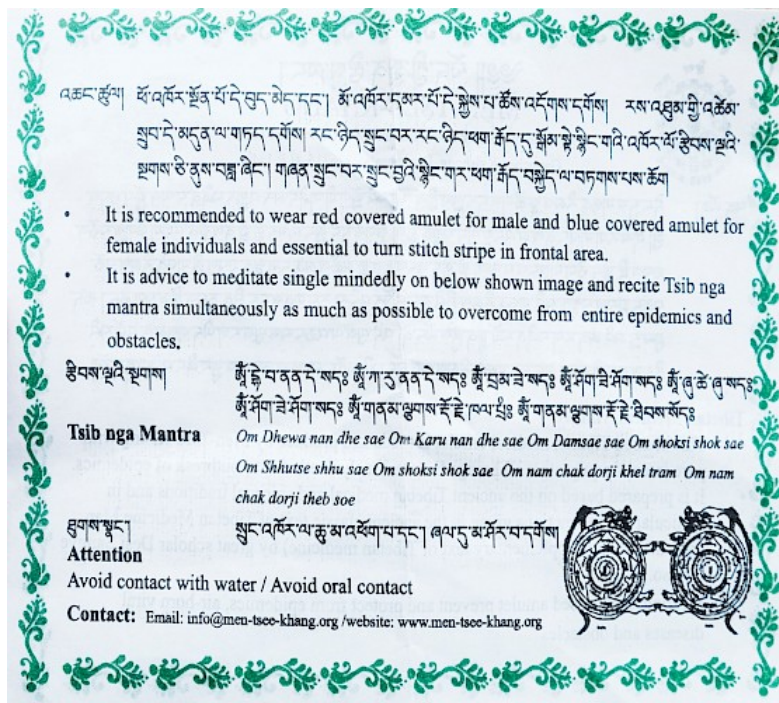 འཆང་ཚུལ། ཕོ་འཁོར་སྔོན་པོ་དེ་བུད་མེད་དང་། མོ་འཁོར་དམར་པོ་དེ་སྐྱེས་པ་ཚོས་འདོགས་དགོས། རས་འཐུམ་གྱི་འཚེམ་
སྲུབ་དེ་མདུན་ལ་གཏད་དགོས། རང་ཉིད་སྲུང་བར་རང་ཉིད་ཕག་རྒོད་དུ་སྒོམ་སྟེ་སྙིང་གའི་འཁོར་ལོ་རྩིབས་ལྔའི་
སྔགས་ཅི་ནུས་བཟླ་ཞིང་། གཞན་སྲུང་བར་སྲུང་བྱའི་སྙིང་གར་ཕག་རྒོད་བསྐྱེད་ལ་བཏགས་པས་ཆོག
• It is recommended to wear red covered amulet for male and blue covered amulet for
female individuals and essential to turn stitch stripe in frontal area.
• It is advice to meditate single mindedly on below shown image and recite Tsib nga
mantra simultaneously as much as possible to overcome from entire epidemics and
obstacles.
རྩིབས་ལྔའི་སྔགས། ཨཱོཾ་དྷེ་བ་ནན་དེ་སད༔ ཨཱོཾ་ཀ་རུ་ནན་དེ་སད༔ ཨཱོཾ་བྲམ་ཟེ་སད༔ ཨཱོཾ་ཤོག་ཟེ་ཤོག་སད༔ ཨཱོཾ་ཞུ་ཚེ་ཞུ་སད༔
ཨཱོཾ་ཤོག་ཟེ་ཤོག་སད༔ ཨཱོཾ་གནམ་ལྕགས་རྡོ་རྗེ་ཁལ་པྲཾ༔ ཨཱོཾ་གནམ་ལྕགས་རྡོ་རྗེ་ཐིབས་སོད༔
Tsib nga Mantra Om Dhewa nan dhe sae Om Karu nan dhe sae Om Damsae sae Om shoksi shok sae
Om Shhutse shhu sae Om shoksi shok sae Om nam chak dorji khel tram Om nam
chak dorji theb soe
ཐུགས་སྣང་། སྲུང་འཁོར་ལ་ཆུ་མ་འཐོག་པ་དང་། ཞལ་དུ་མ་ཤོར་བ་དགོས།
Attention
Avoid contact with water / Avoid oral contact
Contact: Email: info@men-tsee-khang.org /website: www.men-tsee-khang.org